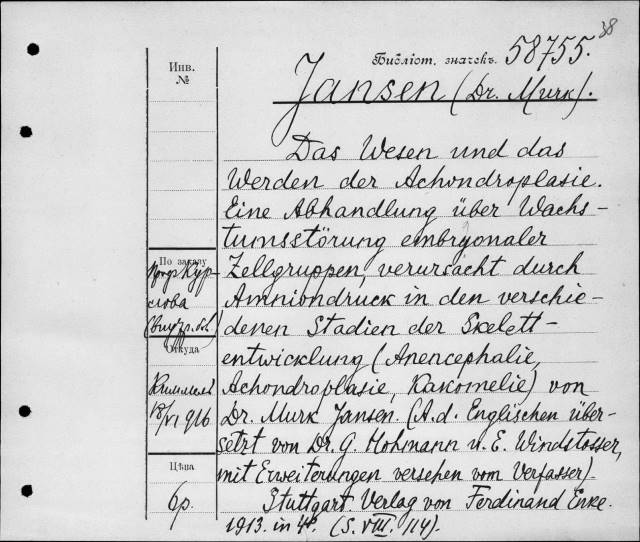 38
Библіот. значекъ. 58755.
Инв.
№
Jansen (Dr. Murk).
Das Wesen und das
Werden der Achondroplasie.
Eine Abhandlung über Wachs-
tumsstörung embryonaler
Zellgruppen, verursacht durch
Amniondruck in den verschie-
denen Stadien der Skelett-
entwicklung (Anencephalie,
Achondroplasie, Kakomelie) von
Dr. Murk Jansen. (A. d. Englischen über-
setzt von Dr. G. Hohmann u. E. Windstosser,
mit Erweiterungen versehen vom Verfasser).
Stuttgart. Verlag von Ferdinand Enke.
1913. in 4º. (S. VIII. 114).
По заказу
Кур-
слова
Откуда
Киммель
18/VI 916
Цѣна
6 р.